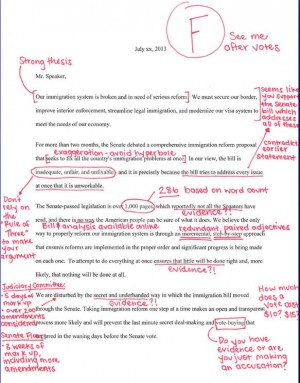 F
See me
after votes
July xx, 2013
Strong thesis
Mr. Speaker,
Our immigration system is broken and in need of serious reform. We must secure our border,
improve interior enforcement, streamline legal immigration, and modernize our visa system to
meet the needs of our economy.
seems like
you support
the Senate
bill which
addresses
all of these
For more than two months, the Senate debated a comprehensive immigration reform proposal
exaggeration - avoid hyperbole
that seeks to fix all the country's immigration problems at once. In our view, the bill is
inadequate, unfair, and unfixable and it is precisely because the bill tries to address every issue
at once that it is unworkable.
contradicts
earlier
statement
Don't
rely on
the
"Rule of
Three"
to make
your
argument
286 based on word count
The Senate-passed legislation is over 1,000 pages which reportedly not all the Senators have
evidence?!
read, and there is no way the American people can be sure of what it does. We believe the only
Bill & analysis available online
redundant, paired adjectives
way to properly reform our immigration system is through an incremental, step-by-step approach
that ensures reforms are implemented in the proper order and significant progress is being made
on each one. To attempt to do everything at once ensures that little will be done right and, more
evidence?!
likely, that nothing will be done at all.
Judiciary Committee:
• 5 days of
mark up
• over 200
amendments
considered
Senate Floor
• 3 weeks of
mark up,
including more
amendments
We are disturbed by the secret and underhanded way in which the immigration bill moved
evidence?!
through the Senate. Taking immigration reform one step at a time makes an open and transparent
process more likely and will prevent the last minute secret deal-making and vote-buying that
occurred in the waning days before the Senate vote.
How much
does a
vote cost
$10? $15?
Do you have
evidence, or are
you just making
an accusation?